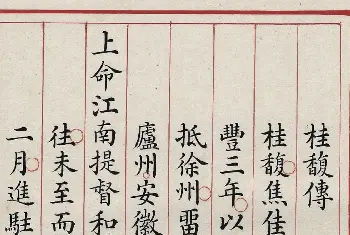 桂馥傳
桂馥焦佳
豐三年以
抵徐州畱
廬州安徽
上命江南提督和
徃未至而
二月進駐